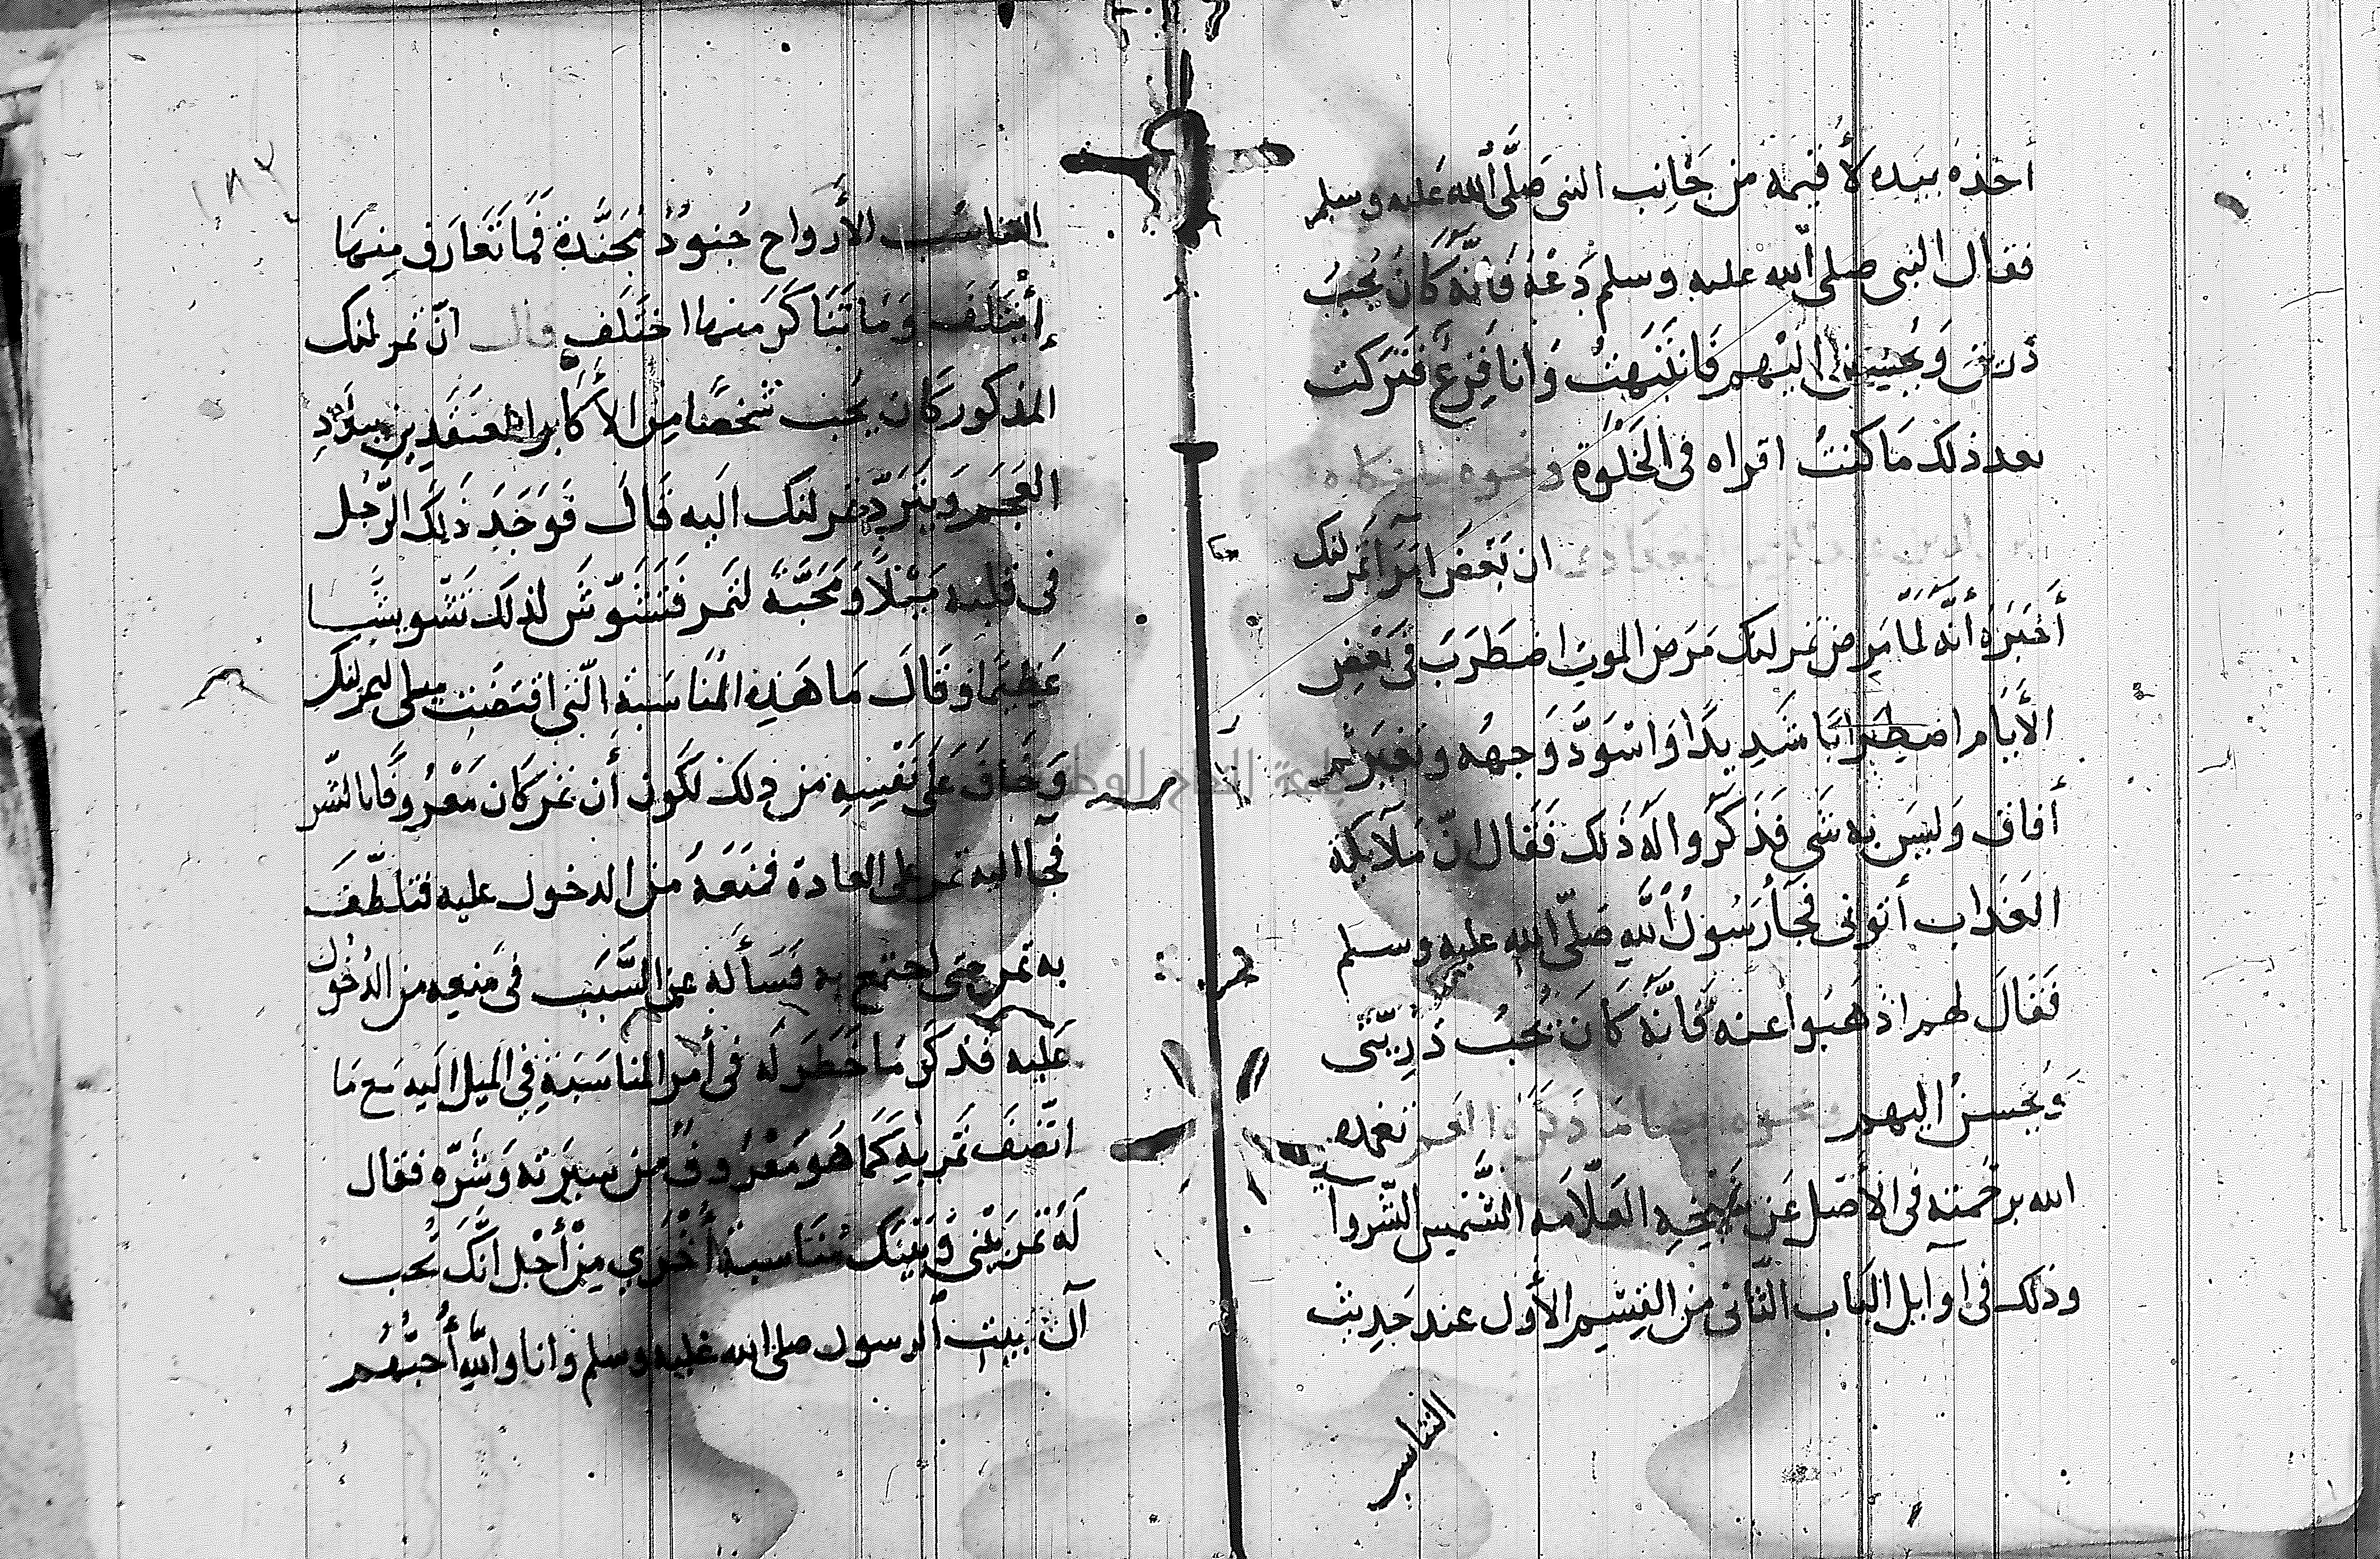 أخذه بيده لأقيمه من جانب النبي صلّى الله عليه وسلم
فقال النبي صلى الله عليه وسلم دَعْهُ فَانّه كَانَ يُحِبُ
ذريتي وَيُحسِنُ اليْهِم فَانْتَبَهتُ وَانا فَزِعٌ فَتَركت
بعد ذلك مَا كنتُ اقراه فى الخَلوَة ونحوه
ان بَعْضَ امَرَآ تمرلنك
أَخبَرَه أَنَّه لَمّا مَرِض تمرلنك مَرَض الموت اضطَرَبَ فى بَعْضِ
الأَيّام اضطِرَابًا شَدِيدًا وَاسْوَدَّ وَجههُ وتغير ثم
أفاق وَليسَ به شَى فَذَكَرُوا لَهُ ذَلك فَقال انّ مَلآيكة
العَذَاب أتونى فجَآ رَسُولُ اللهِ صَلّى الله عليه وسلم
فَقالَ لهم اذهَبُوا عنه فَانّه كَانَ يُحبُ ذُرِيّتى
وَيُحسنُ اليهم ونحوه ذكره تغمده
الله برحمته فى الأصل عَن شيخِهِ العَلّامَه الشّمس الشّروا
وذلك فى اوآيل الكتاب الثّانى من القِسْم الأَول عند حَدِيث
التناسب
التناسب الأَرواح جُنودٌ مُجَنَّدة فَمَا تَعَارَف مِنهَا
إئتَلَفَ وَمَا تَنَاكَرَ منها اختَلَف قال انّ تمرلنك
المذكور كَان يُحب شَخصًا مِن الأَكَابر المعتقَدِين ببلَادِ
العَجم وَيتَرَدّد تمرلنك اليه قَالَ فَوَجَدَ ذَلِكَ الرّجُل
فى قلبه مَيْلًا وَمَحَبَّةً لتَمر فتَشَوّشَ لذلك تَشويشًا
عَظِيمًا وَقَالَ مَا هَذِهِ المُنَاسَبة الّتى اقتَضَت ميلى اليتمرلنك
وَخَافَ عَلى نَفْسِهِ من ذلك لكَونِ أَن تَمر كَان مَعْرُوفًا بالشّر
فجَآ اليه تمر على العادة فَمَنَعَهُ من الدخول عليه فتلطّفَ
به تمر حتى اجتمع به فَسَأله عن السَّبَب فى مَنعِه من الدُخُول
عَليه فذكَرَ مَا خَطَرَ له فى أمرِ المناسَبَةِ فى الميل اليه مَع مَا
اتّصَفَ تَمر بِهِ كَمَا هُو مَعْرُوفٌ من سيرَته وَشَرّه فقال
لَهُ تمر بَيْني وَبَيْنَك مُنَاسبة أُخْرَى مِنْ أَجْل انّكَ تُحب
آل بيت الرسول صلى الله عليه وسلم وَانا وَاللّهِ أُحِبُّهُم